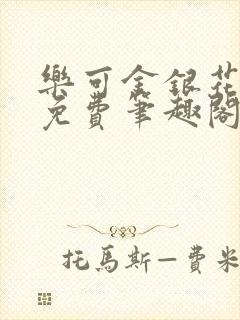 樂可金銀花
免費筆趣閣
托馬斯—費米